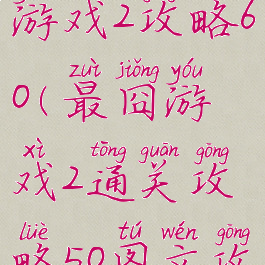 游戏2攻略6
zuì jiǒng yóu
0(最囧游
xì tōng guān gōng
戏2通关攻
lüè tú wén gōng
略50图文攻